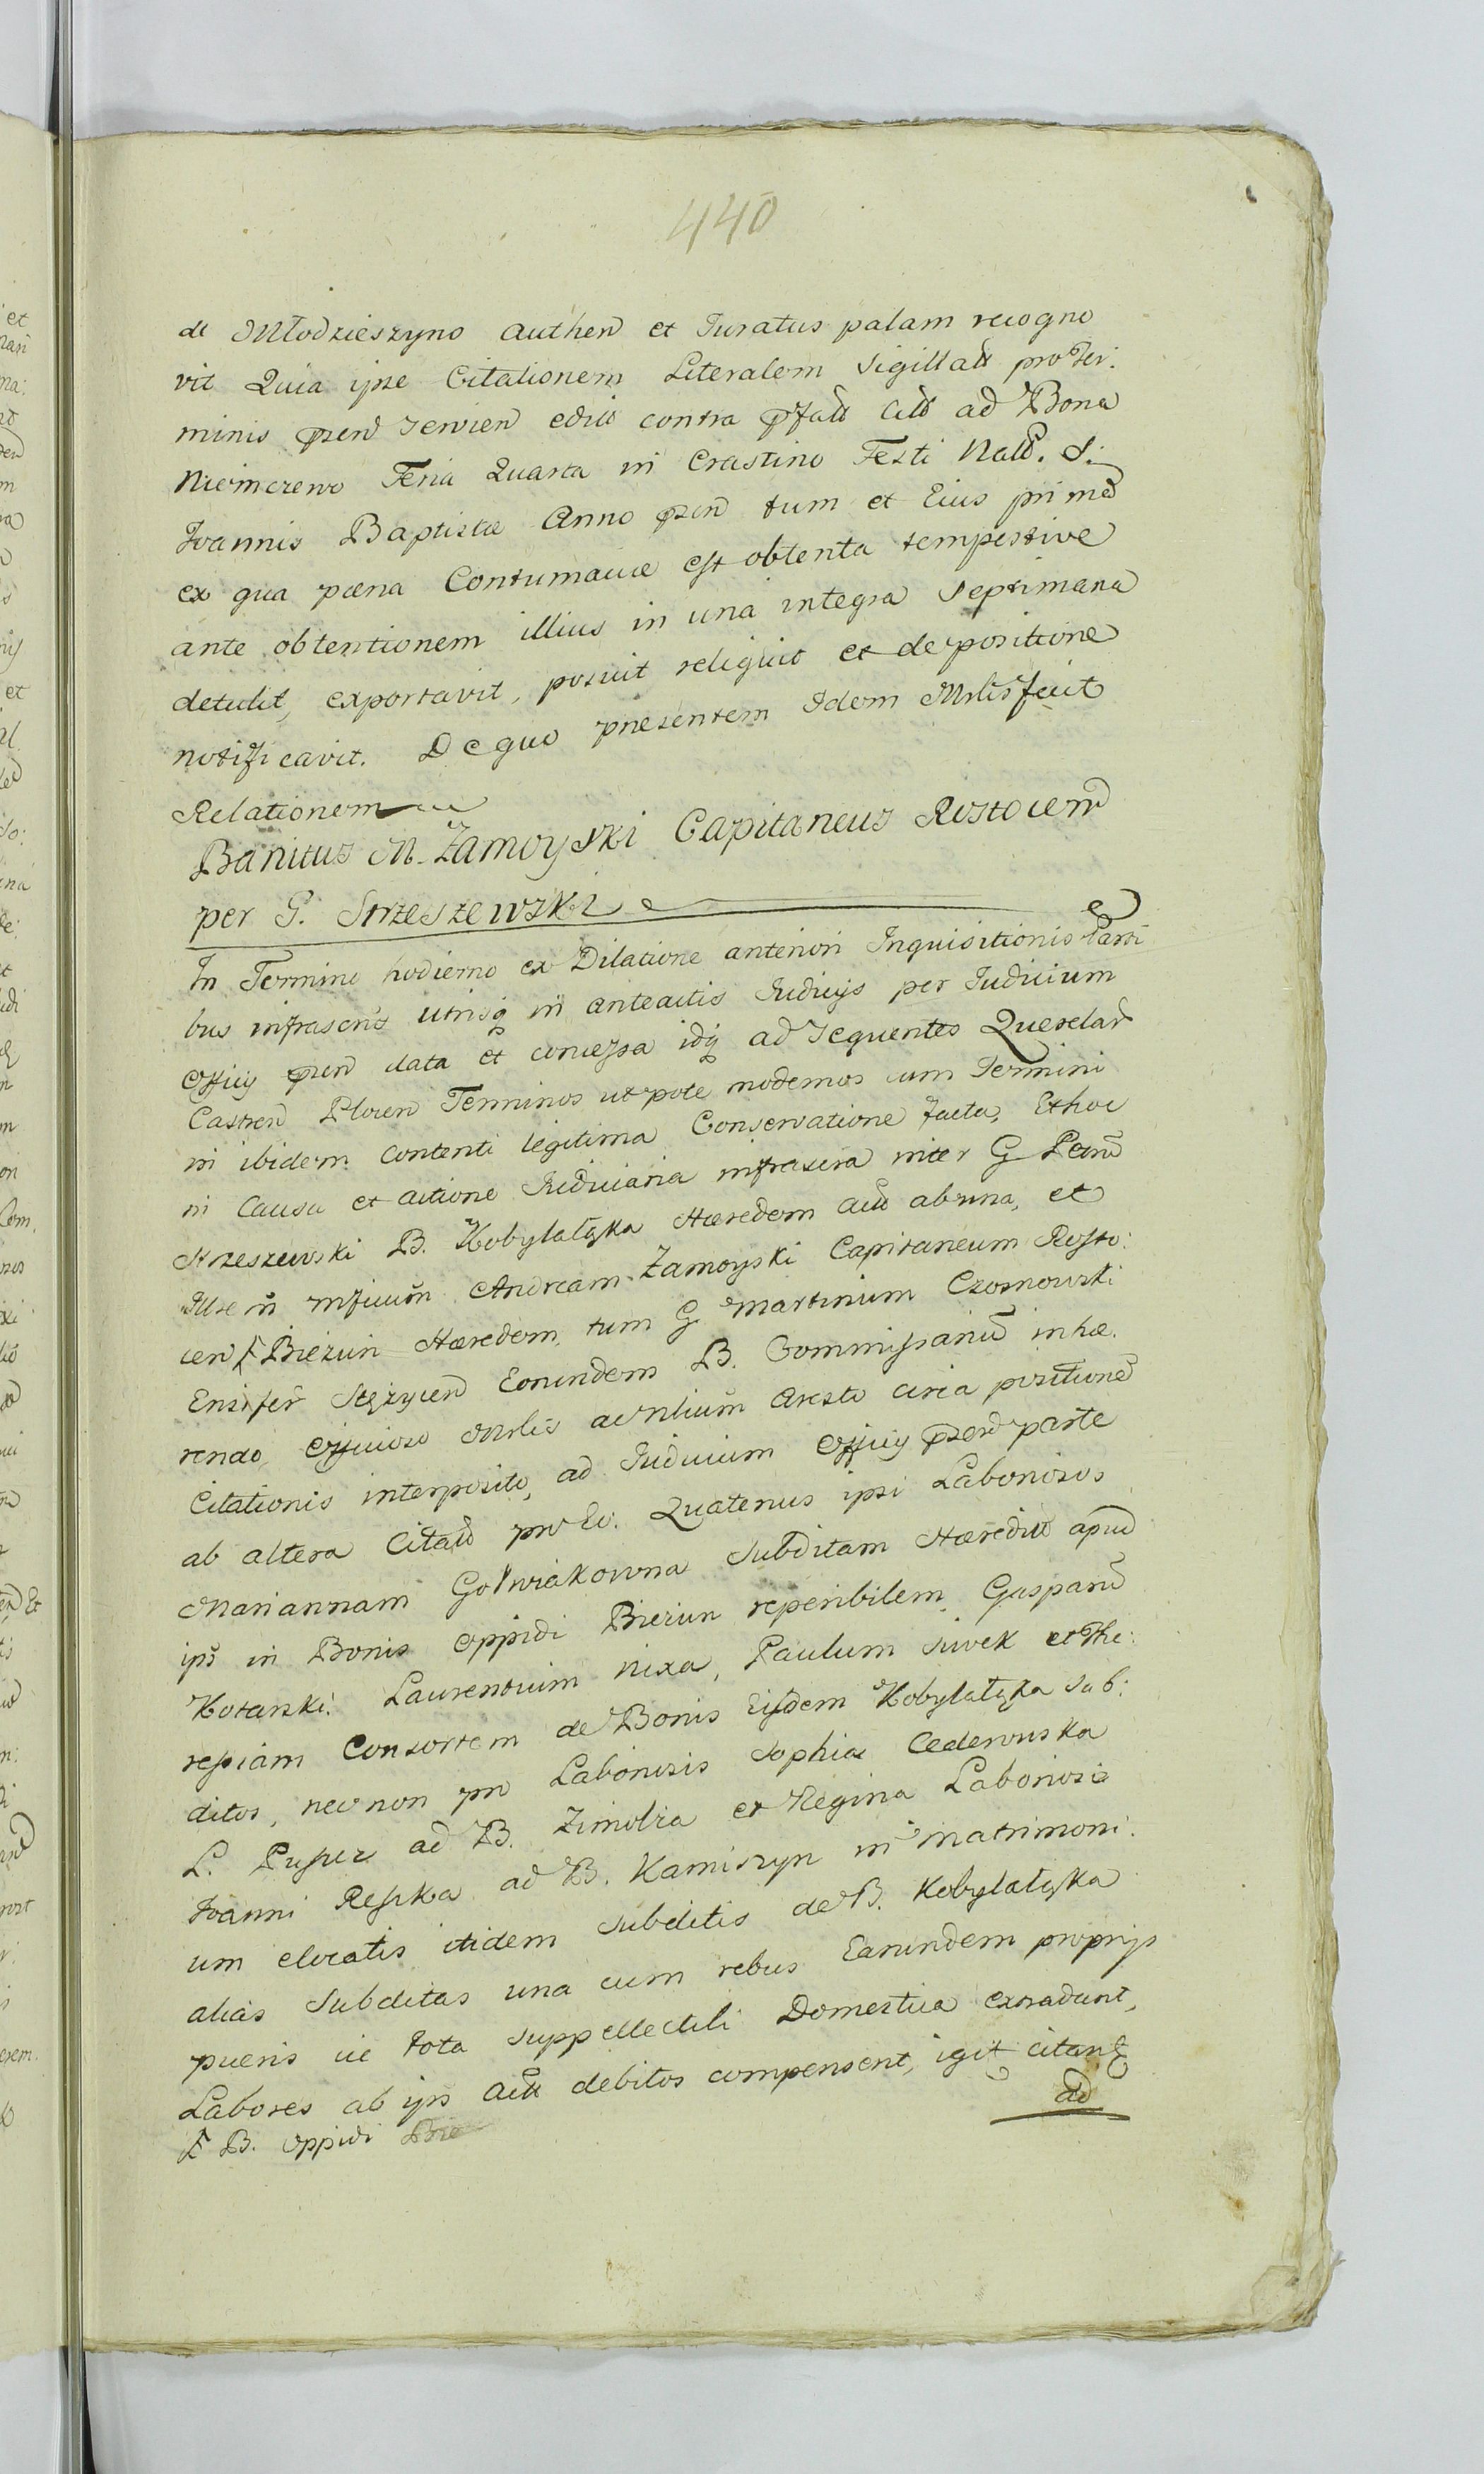 440
de Młodzieszyno Authen et Juratus palam recogno
vit Quia ipse Citationem Literalem Sigillatt pro Ter:
minis pzen servien editt contra pfatt Citt ad Bona
Niemczewo Feria Quarta in Crastino Festi Natt. S:
Joannis Baptistæ Anno pzen tum et Eius prima
ex qua pæna Contumaciæ est obtenta tempestive
ante obtentionem illius in una integra Septimana
detulit, exportavit, posuit reliquit et de positione
notificavit. De quo præsentem Idem Mlis fecit
Relationem
Banitus M. Zamoyski Capitaneus Rostocien
per G. Strzeszewski
In Termino hodierno ex Dilatione anteriori Inquisitionis Parti
bus infrascris utrisq in anteactis Judicijs per Judicium
Officij pzen data et concessa idq ad sequentes Querelar
Castren Plocen Terminos utpote modernos cum Termini
in ibidem contenti legitima Conservatione facta, Et hoc
in Causa et actione Judiciaria infrascra inter G Petru
Strzeszewski B. Kobylałąka Hæredem Actt ab una, et
Illsem Mficum Andream Zamoyski Capitaneum Rosto:
cen F Bieżuń Hæredem, tum G Martinium Czosnowski
Ensifer Stężycen Eorundem B. Commissariu inhæ.
rendo, Officioso Mlis ac Nlium Aresto circa positione
Citationis interposito, ad Judicium Officij pzen parte
ab altera Citatt pro Eo. Quatenus ipsi Laboriosos
Mariannam Gołwiakowna Subditam Hæreditt apud
ips in Bonis Oppidi Bieżun reperibilem, Gasparu
Kotarski. Laurentium Nixa, Paulum Siwek et The:
ressiam Consortem de Bonis Eijsdem Kobylałąka Sub:
ditos, nec non pro Laboriosis Sophia Cederowska
L. Puster ad B. Zimolza et Regina Laborioso
Joanni Reszka ad B. Kamiszyn in Matrimoni:
um elocatis itidem Subditis de B. Kobylałąka
alias Subditas una cum rebus Earundem proprijs
pueris ac tota suppellectili Domestica extradant,
Labores ab ips Actt debitos compensent, igit citant
ad
F B. Oppidi